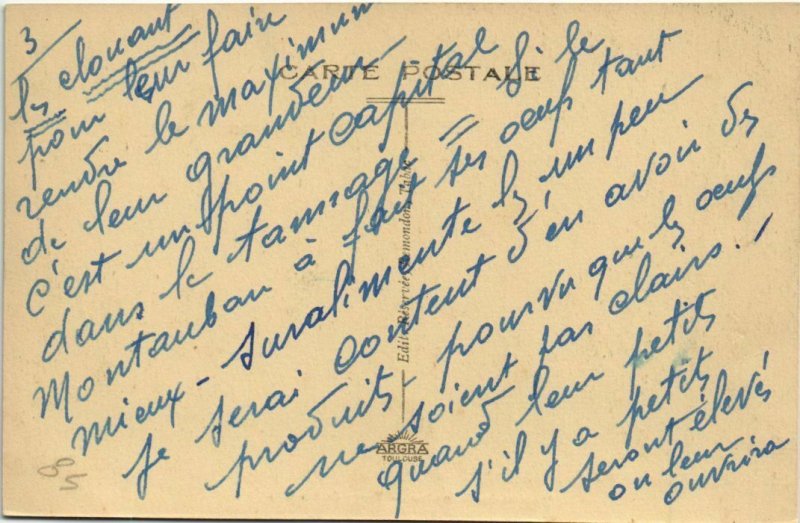 3
les clouant
pour leur faire
rendre le maximum
de leur grandeur
c'est un point capital
dans le tannage = Si le
Montauban à fait ses oeufs tant
mieux - suralimente les un peu
je serai content d'en avoir des
produits - pourvu que les oeufs
ne soient pas clairs !
quand leur petits
s'il y a petits
seront élevés
on leur
ouvrira
CARTE POSTALE
Edit. Réservée
ARGRA
TOULOUSE
85